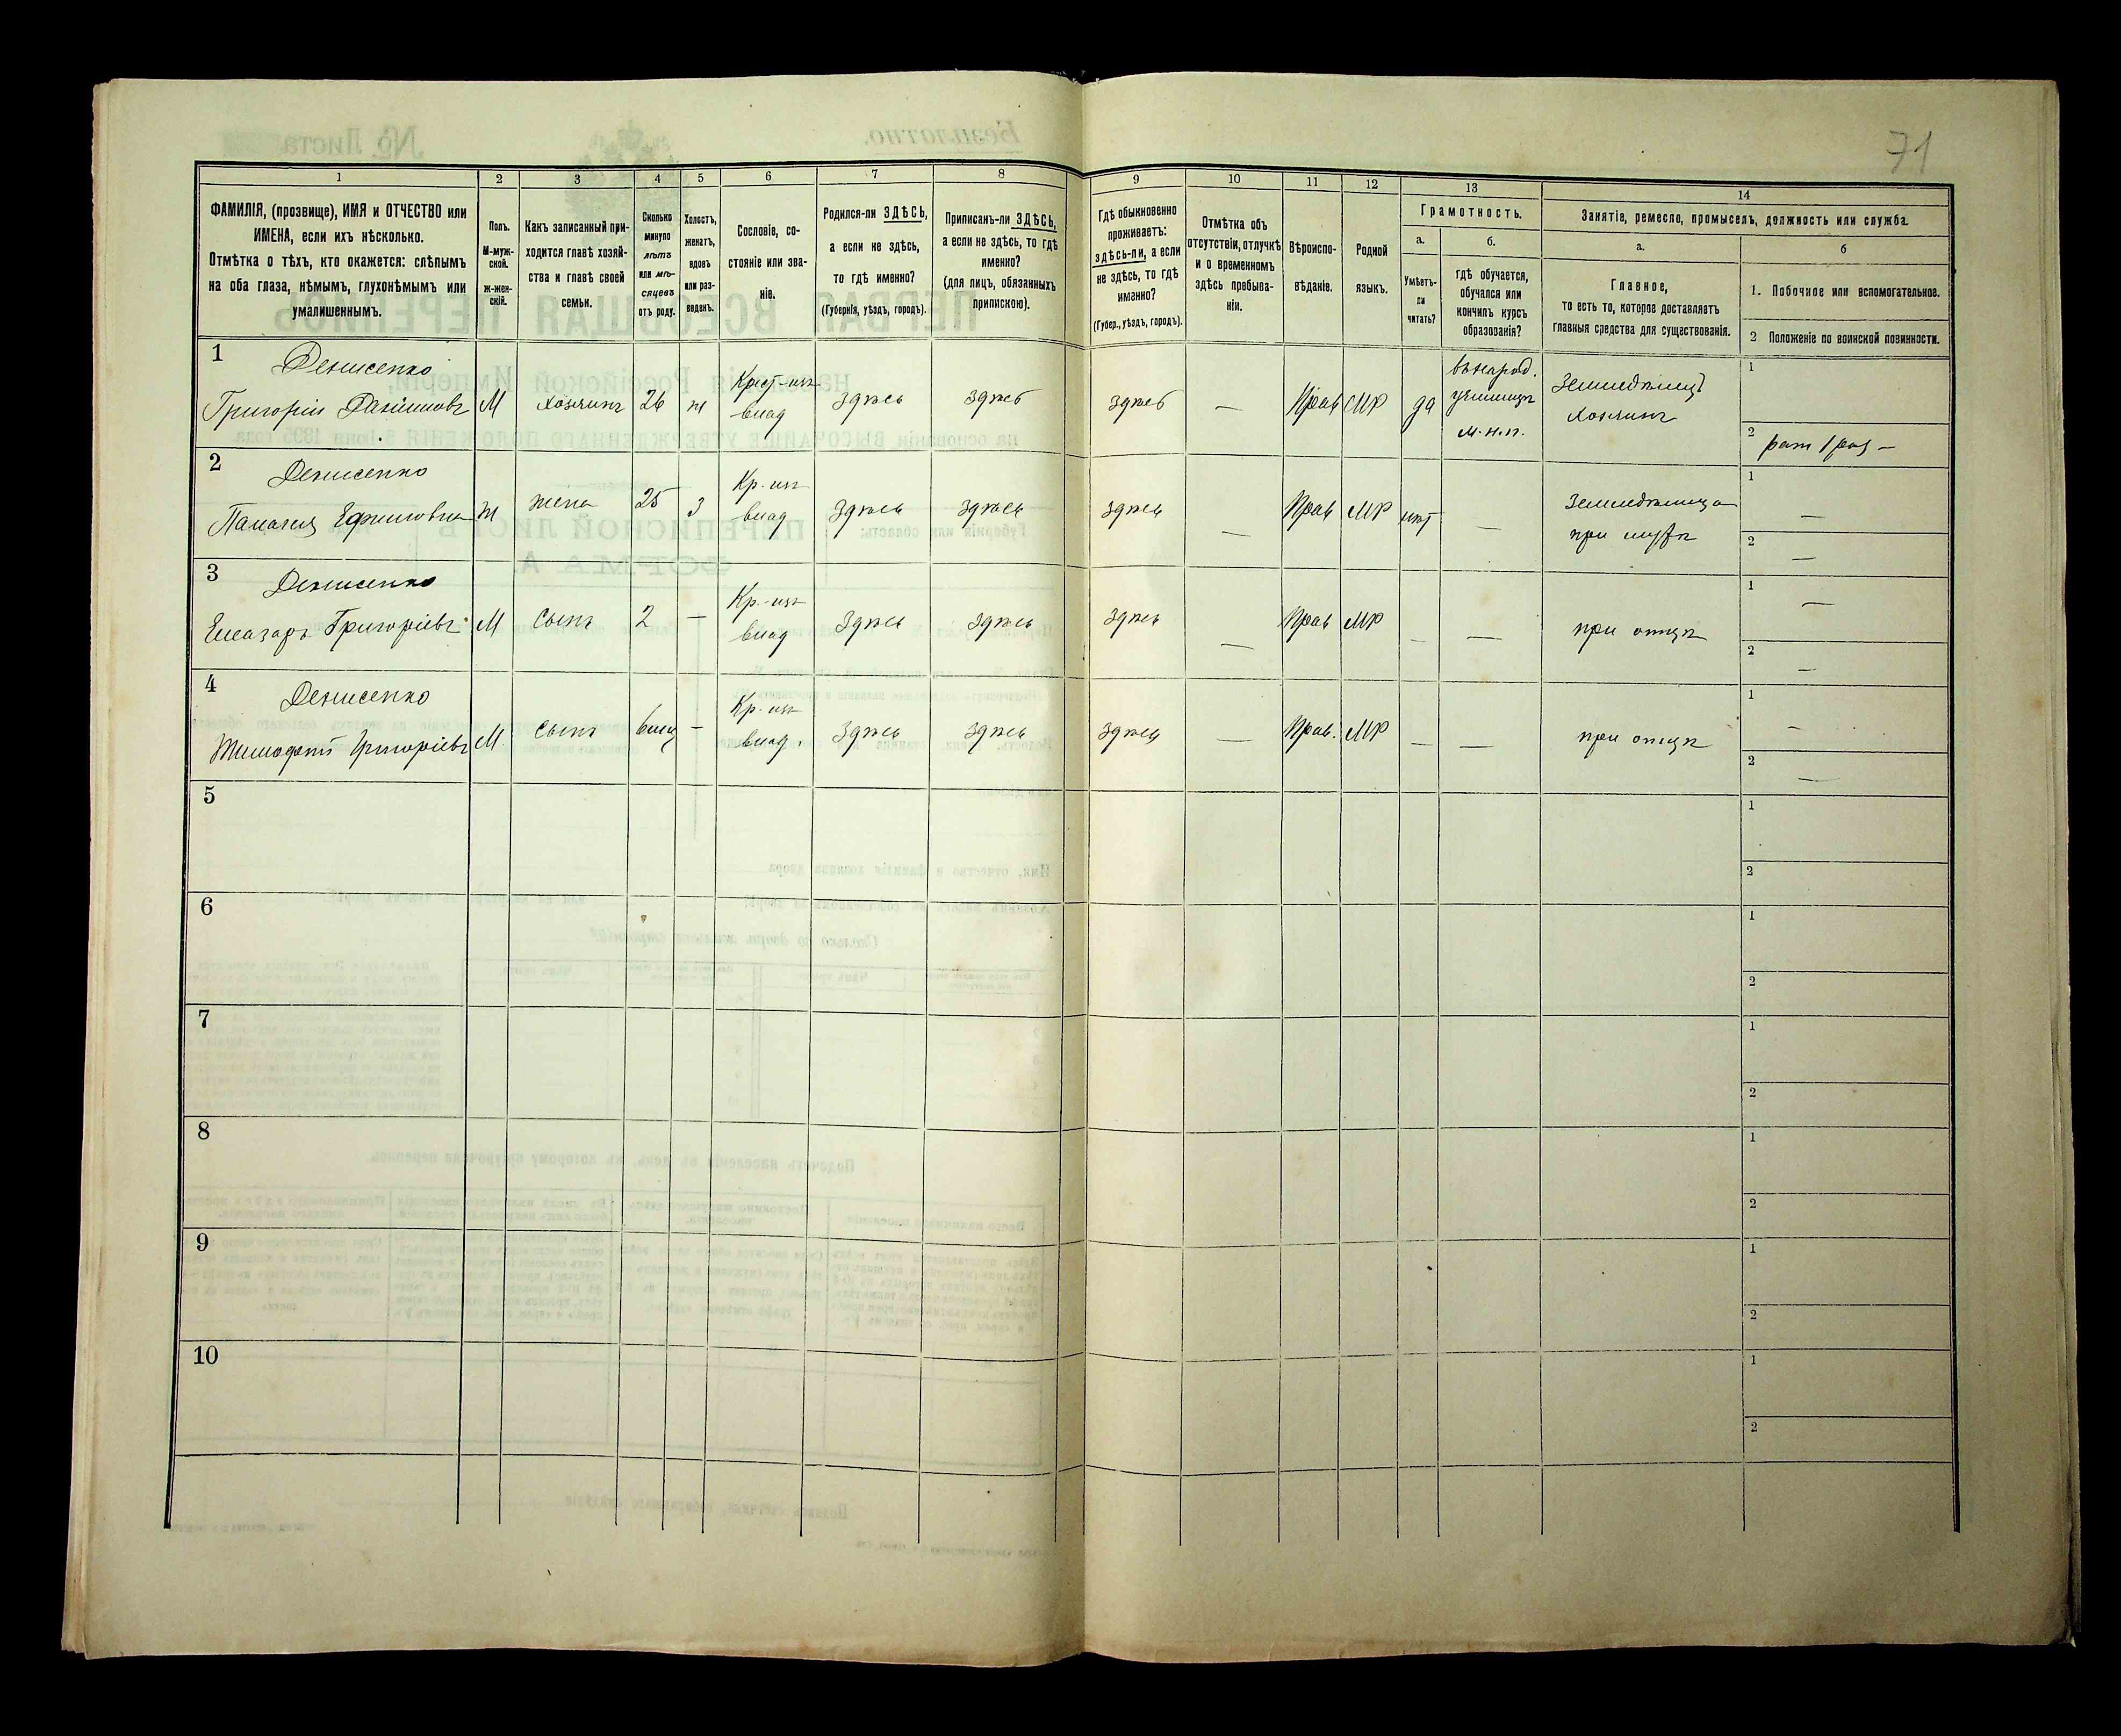 71
1 2 3 4 5 6 7 8 9 10 11 12 13 14
ФАМИЛІЯ, (прозвище), ИМЯ и ОТЧЕСТВО или
ИМЕНА, если ихъ нѣсколько.
Отмѣтка о тѣхъ, кто окажется: слѣпымъ
на оба глаза, нѣмымъ, глухонѣмымъ или
умалишеннымъ.
Полъ.
М-муж-
ской.
ж-жен-
скій.
Какъ записанный при-
ходится главѣ хозяй-
ства и главѣ своей
семьи.
Сколько
минуло
лѣтъ
или мѣ-
сяцевъ
отъ роду.
Холостъ,
женатъ,
вдовъ
или раз-
веденъ.
Сословіе, со-
стояніе или зва-
ніе.
Родился-ли ЗДѢСЬ,
а если не здѣсь,
то гдѣ именно?
(Губернія, уѣздъ, городъ).
Приписанъ-ли ЗДѢСЬ,
а если не здѣсь, то гдѣ
именно?
(для лицъ, обязанныхъ
припискою).
Гдѣ обыкновенно
проживаетъ:
здѣсь-ли, а если
не здѣсь, то гдѣ
именно?
(Губер., уѣздъ, городъ).
Отмѣтка объ
отсутствіи, отлучкѣ
и о временномъ
здѣсь пребыва-
ніи.
Вѣроиспо-
вѣданіе.
Родной
языкъ.
Грамотность.
а.
Умѣетъ-
ли
читать?
б.
гдѣ обучается,
обучался или
кончилъ курсъ
образованія?
Занятіе, ремесло, промыселъ, должность или служба.
а.
Главное,
то есть то, которое доставляетъ
главныя средства для существованія.
б
1. Побочное или вспомогательное.
2 Положеніе по воинской повинности.
1 Денисенко
Григорій М хозяинъ 26 ж Крест-изъ влад здѣсь здѣсь здѣсь — Прав МР да въ народ. училищѣ м.н.п. Земледѣлецъ хозяинъ 1
2 рат 1 раз —
2 Денисенко
Палагея Ефимовна ж жена 25 з Кр.-изъ влад здѣсь здѣсь здѣсь — Прав МР нѣт — Земледѣлица при мужѣ 1 —
2 —
3 Денисенко
Елеазаръ Григоріевъ М сынъ 2 — Кр.-изъ влад здѣсь здѣсь здѣсь — Прав МР — — при отцѣ 1 —
2 —
4 Денисенко
Тимофей Григоріевъ М сынъ 6 мц — Кр.-изъ влад. здѣсь здѣсь здѣсь — Прав. МР — — при отцѣ 1 —
2 —
5 1
2
6 1
2
7 1
2
8 1
2
9 1
2
10 1
2